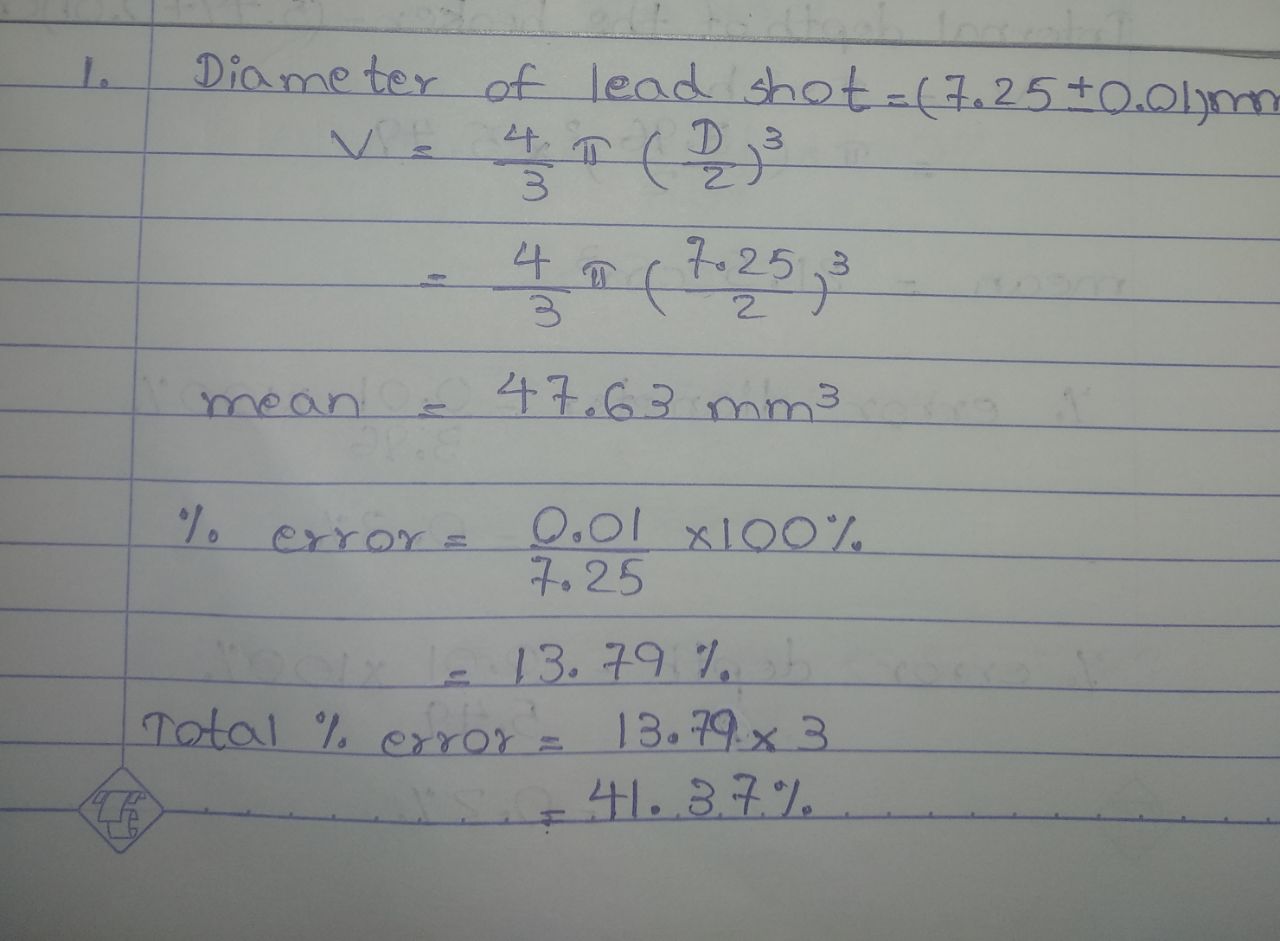 1. Diameter of lead shot = (7.25 ± 0.01) mm
V = 4/3 π (D/2)³
= 4/3 π (7.25/2)³
mean = 47.63 mm³
% error = 0.01/7.25 × 100%
= 13.79 %
Total % error = 13.79 × 3
= 41.37%